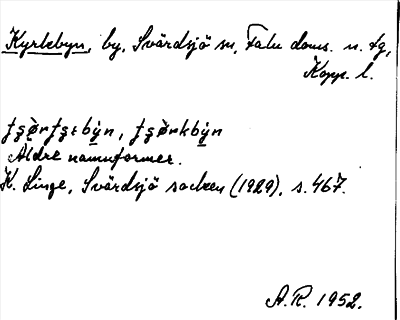 Kyrkbyn, by, Svärdsjö sn, Falu doms. n. tg,
Kopp. l.
Äldre namnformer.
K. Linge, Svärdsjö socken (1929), s. 467.
A.R. 1952.